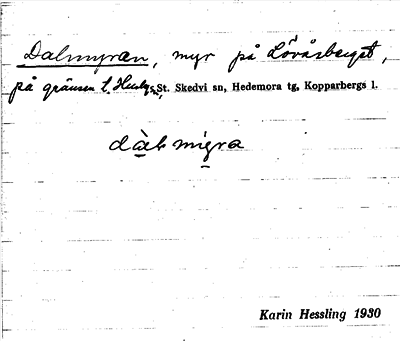 Dalmyran, myr på Lövåsberget,
på gränsen t. Husby s., St. Skedvi sn, Hedemora tg, Kopparbergs l.
Karin Hessling 1930